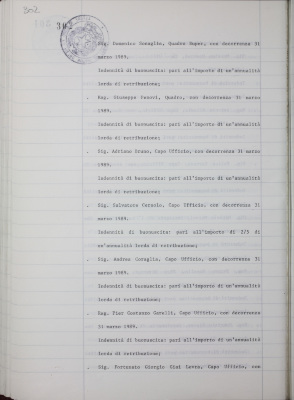 302
302
. Sig. Domenico Conaglio, Quadro Super, con decorrenza 31
marzo 1989.
Indennità di buonuscita: pari all'importo di un'annualità
lorda di retribuzione;
. Rag. Giuseppe Quadro, con decorrenza 31 marzo
1989.
Indennità di buonuscita: pari all'importo di un'annualità
lorda di retribuzione;
. Sig. Adriano Bruno, Capo Ufficio, con decorrenza 31 marzo
1989.
Indennità di buonuscita: pari all'importo di un'annualità
lorda di retribuzione;
. Sig. Salvatore Capo Ufficio, con decorrenza 31
marzo 1989.
Indennità di buonuscita: pari all'importo di 2/3 di
un'annualità lorda di retribuzione;
. Sig. Andrea Capo Ufficio, con decorrenza 31
marzo 1989.
Indennità di buonuscita: pari all'importo di un'annualità
lorda di retribuzione;
. Rag. Pier Gaetano Cavalli, Capo Ufficio, con decorrenza
31 marzo 1989.
Indennità di buonuscita: pari all'importo di un'annualità
lorda di retribuzione;
. Sig. Fortunato Giorgio Capo Ufficio, con